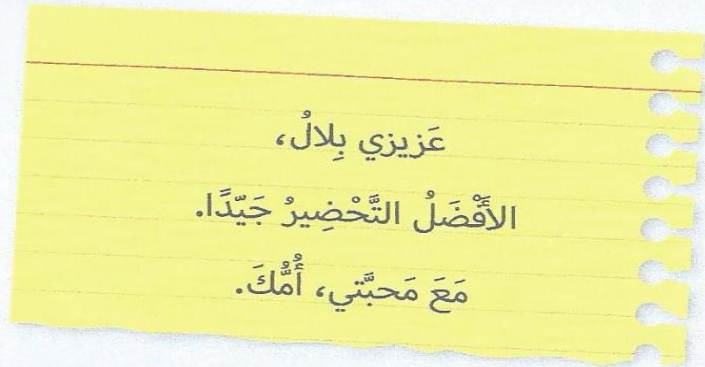 عَزيزي بِلالُ،
الأَفْضَلُ التَّحْضِيرُ جَيّدًا.
مَعَ مَحبَّتي، أُمُّكَ.